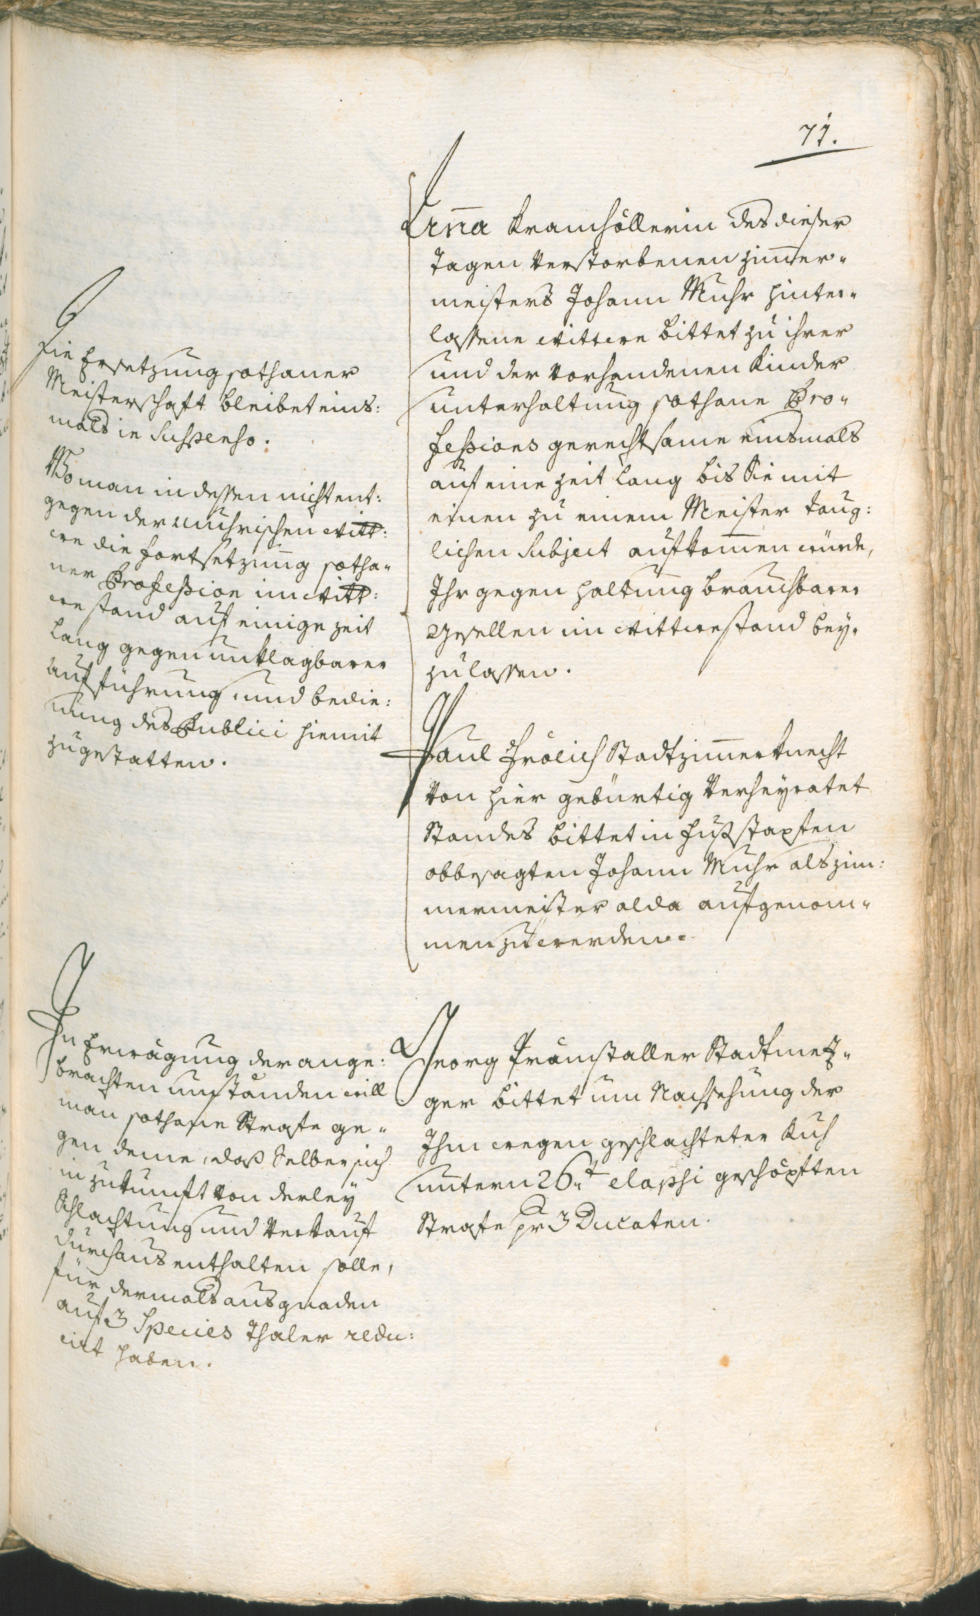 71.
Anna Kramhöllerin des dieser
Tagen verstorbenen Zimmer-
meisters Johann Muhr hinter-
lassene Wittwe bittet zu ihrer
und der vorhandenen Kinder
unterhaltung sothane Pro-
fessions gerechtsame einsmals
auf eine Zeit lang bis Sie mit
einen zu einem Meister taug:
lichen Subject aufkommen würde,
Ihr gegen haltung brauchbarer
Gesellen im Wittwestand bey-
zulassen.
Die Ersetzung sothaner
Meisterschaft bleibet eins:
mals in Suspenso.
Wo man in dessen nicht ent:
gegen der Muhrischen Witt:
we die Fortsetzung sotha-
ner Profession im Witt:
westand auf einige Zeit
lang gegen unklagbarer
aufführung und bedie:
nung des Publici hiemit
zugestatten.
Paul Frölich Stadtzimmerknecht
von hier gebürtig verheyratet
Standes bittet in fußstapfen
obbesagten Johann Muhr als Zim:
mermeister alda aufgenom-
men zu werden.
Georg Prämstaller Stadtmetz-
ger bittet um Nachsehung der
Ihm wegen geschlachteter Kuh
untern 26.t elapsi geschöpften
Strafe pr 3 Ducaten.
In Erwägung der ange:
brachten umständen will
man sothane Strafe ge-
gen deme, daß Selber sich
in zukunft von derley
Schlachtung und Verkauf
durchaus enthalten solle,
für dermals aus gnaden
auf 3 Species Thaler redu:
cirt haben.